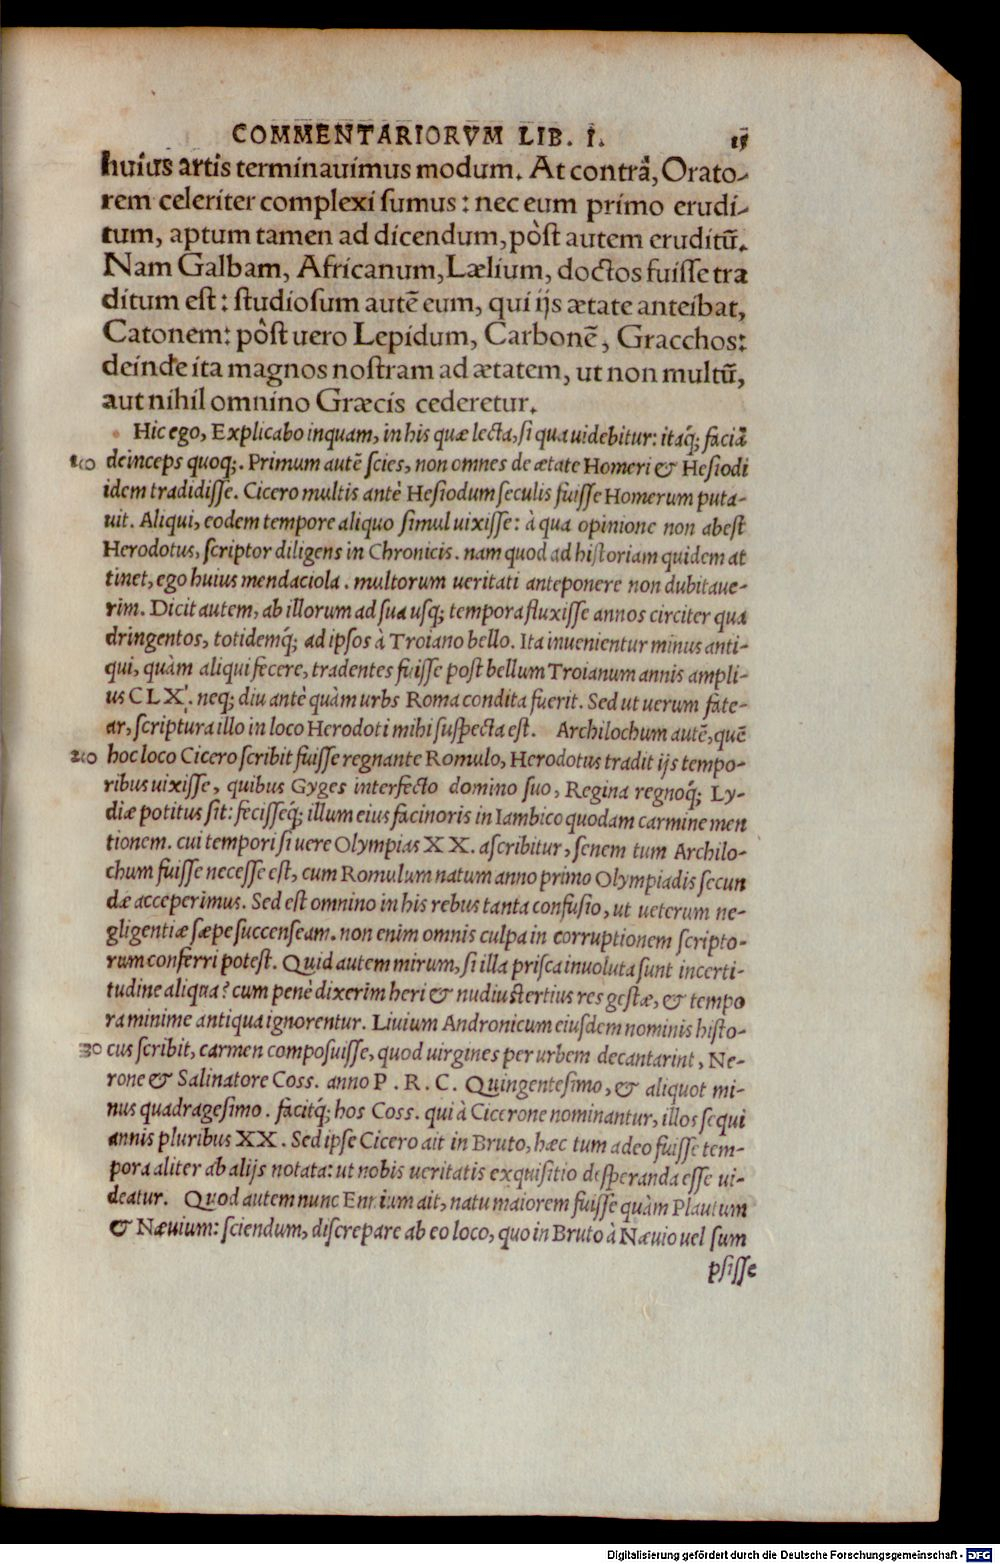 COMMENTARIORVM LIB. I. 15
huius artis terminauimus modum. At contrà, Orato-
rem celeriter complexi sumus: nec eum primo erudi-
tum, aptum tamen ad dicendum, pòst autem eruditũ.
Nam Galbam, Africanum, Lælium, doctos fuisse tra
ditum est: studiosum autẽ eum, qui ijs ætate anteibat,
Catonem: pòst uero Lepidum, Carbonẽ, Gracchos:
deinde ita magnos nostram ad ætatem, ut non multũ,
aut nihil omnino Græcis cederetur.
Hic ego, Explicabo inquam, in his quæ lecta, si qua uidebitur: itaq́; faciã
10 deinceps quoq;. Primum autẽ scies, non omnes de ætate Homeri & Hesiodi
idem tradidisse. Cicero multis antè Hesiodum seculis fuisse Homerum puta-
uit. Aliqui, eodem tempore aliquo simul uixisse: à qua opinione non abest
Herodotus, scriptor diligens in Chronicis. nam quod ad historiam quidem at
tinet, ego huius mendaciola. multorum ueritati anteponere non dubitaue-
rim. Dicit autem, ab illorum ad sua usq; tempora fluxisse annos circiter qua
dringentos, totidemq́; ad ipsos à Troiano bello. Ita inuenientur minus anti-
qui, quàm aliqui fecere, tradentes fuisse post bellum Troianum annis ampli-
us CLX. neq; diu antè quàm urbs Roma condita fuerit. Sed ut uerum fate-
ar, scriptura illo in loco Herodoti mihi suspecta est. Archilochum autẽ, quẽ
20 hoc loco Cicero scribit fuisse regnante Romulo, Herodotus tradit ijs tempo-
ribus uixisse, quibus Gyges interfecto domino suo, Regina regnoq́; Ly-
diæ potitus sit: fecisseq́; illum eius facinoris in Iambico quodam carmine men
tionem. cui tempori si uere Olympias XX. ascribitur, senem tum Archilo-
chum fuisse necesse est, cum Romulum natum anno primo Olympiadis secun
dæ acceperimus. Sed est omnino in his rebus tanta confusio, ut ueterum ne-
gligentiæ sæpe succenseam. non enim omnis culpa in corruptionem scripto-
rum conferri potest. Quid autem mirum, si illa prisca inuoluta sunt incerti-
tudine aliqua? cum penè dixerim heri & nudiustertius res gestæ, & tempo
ra minime antiqua ignorentur. Liuium Andronicum eiusdem nominis histo-
30 cus scribit, carmen composuisse, quod uirgines per urbem decantarint, Ne-
rone & Salinatore Coss. anno P. R. C. Quingentesimo, & aliquot mi-
nus quadragesimo. facitq́; hos Coss. qui à Cicerone nominantur, illos sequi
annis pluribus XX. Sed ipse Cicero ait in Bruto, hæc tum adeo fuisse tem-
pora aliter ab alijs notata: ut nobis ueritatis exquisitio desperanda esse ui-
deatur. Quod autem nunc Ennium ait, natu maiorem fuisse quàm Plautum
& Næuium: sciendum, discrepare ab eo loco, quo in Bruto à Næuio uel sum
psisse
Digitalisierung gefördert durch die Deutsche Forschungsgemeinschaft - DFG